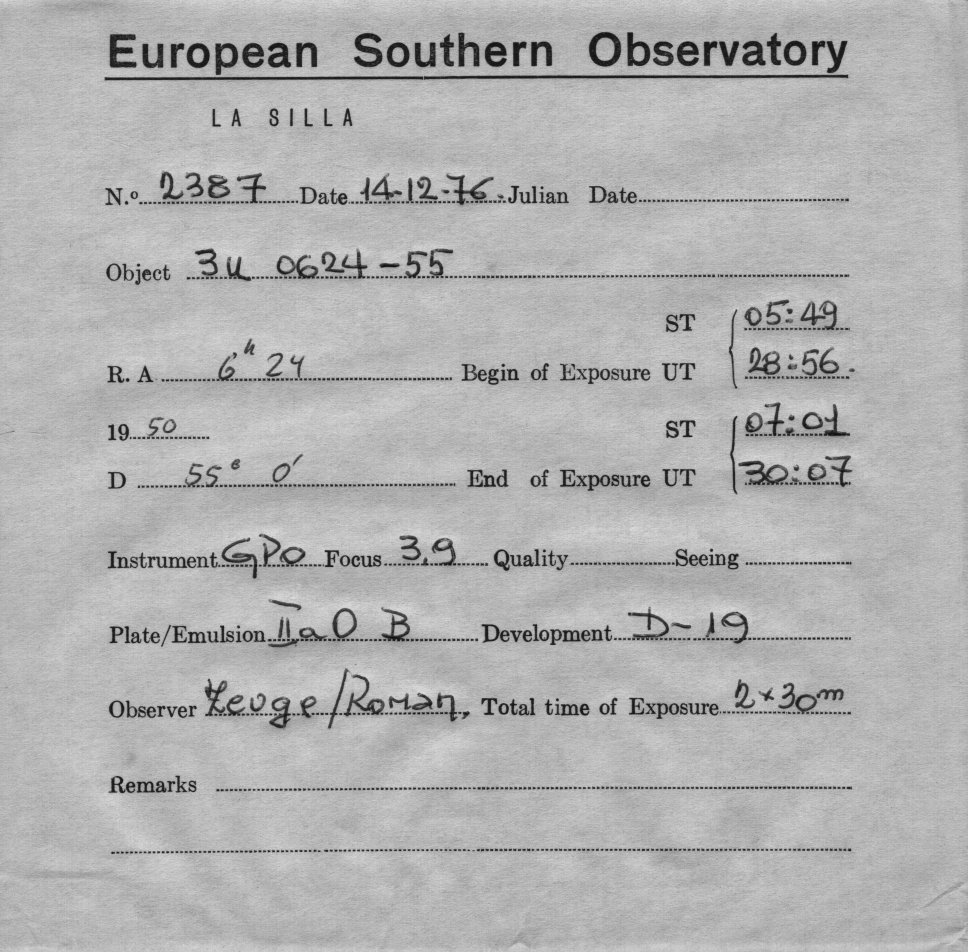 European Southern Observatory
LA SILLA
N.º 2387 Date 14-12-76. Julian Date
Object 3U 0624-55
ST 05:49
R. A 6ʰ 24 Begin of Exposure UT 28:56.
19 50 ST 07:01
D 55° 0′ End of Exposure UT 30:07
Instrument GPO Focus 3.9 Quality Seeing
Plate/Emulsion IIaO B Development D-19
Observer /Roman, Total time of Exposure 2×30ᵐ
Remarks